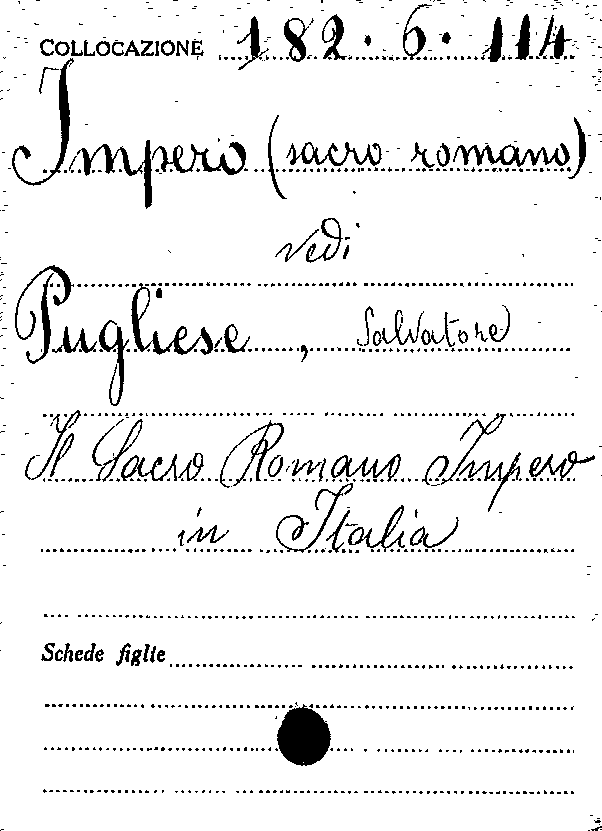 COLLOCAZIONE 182.6.114
Impero (sacro romano)
vedi
Pugliese, Salvatore
Il Sacro Romano Impero
in Italia
Schede figlie